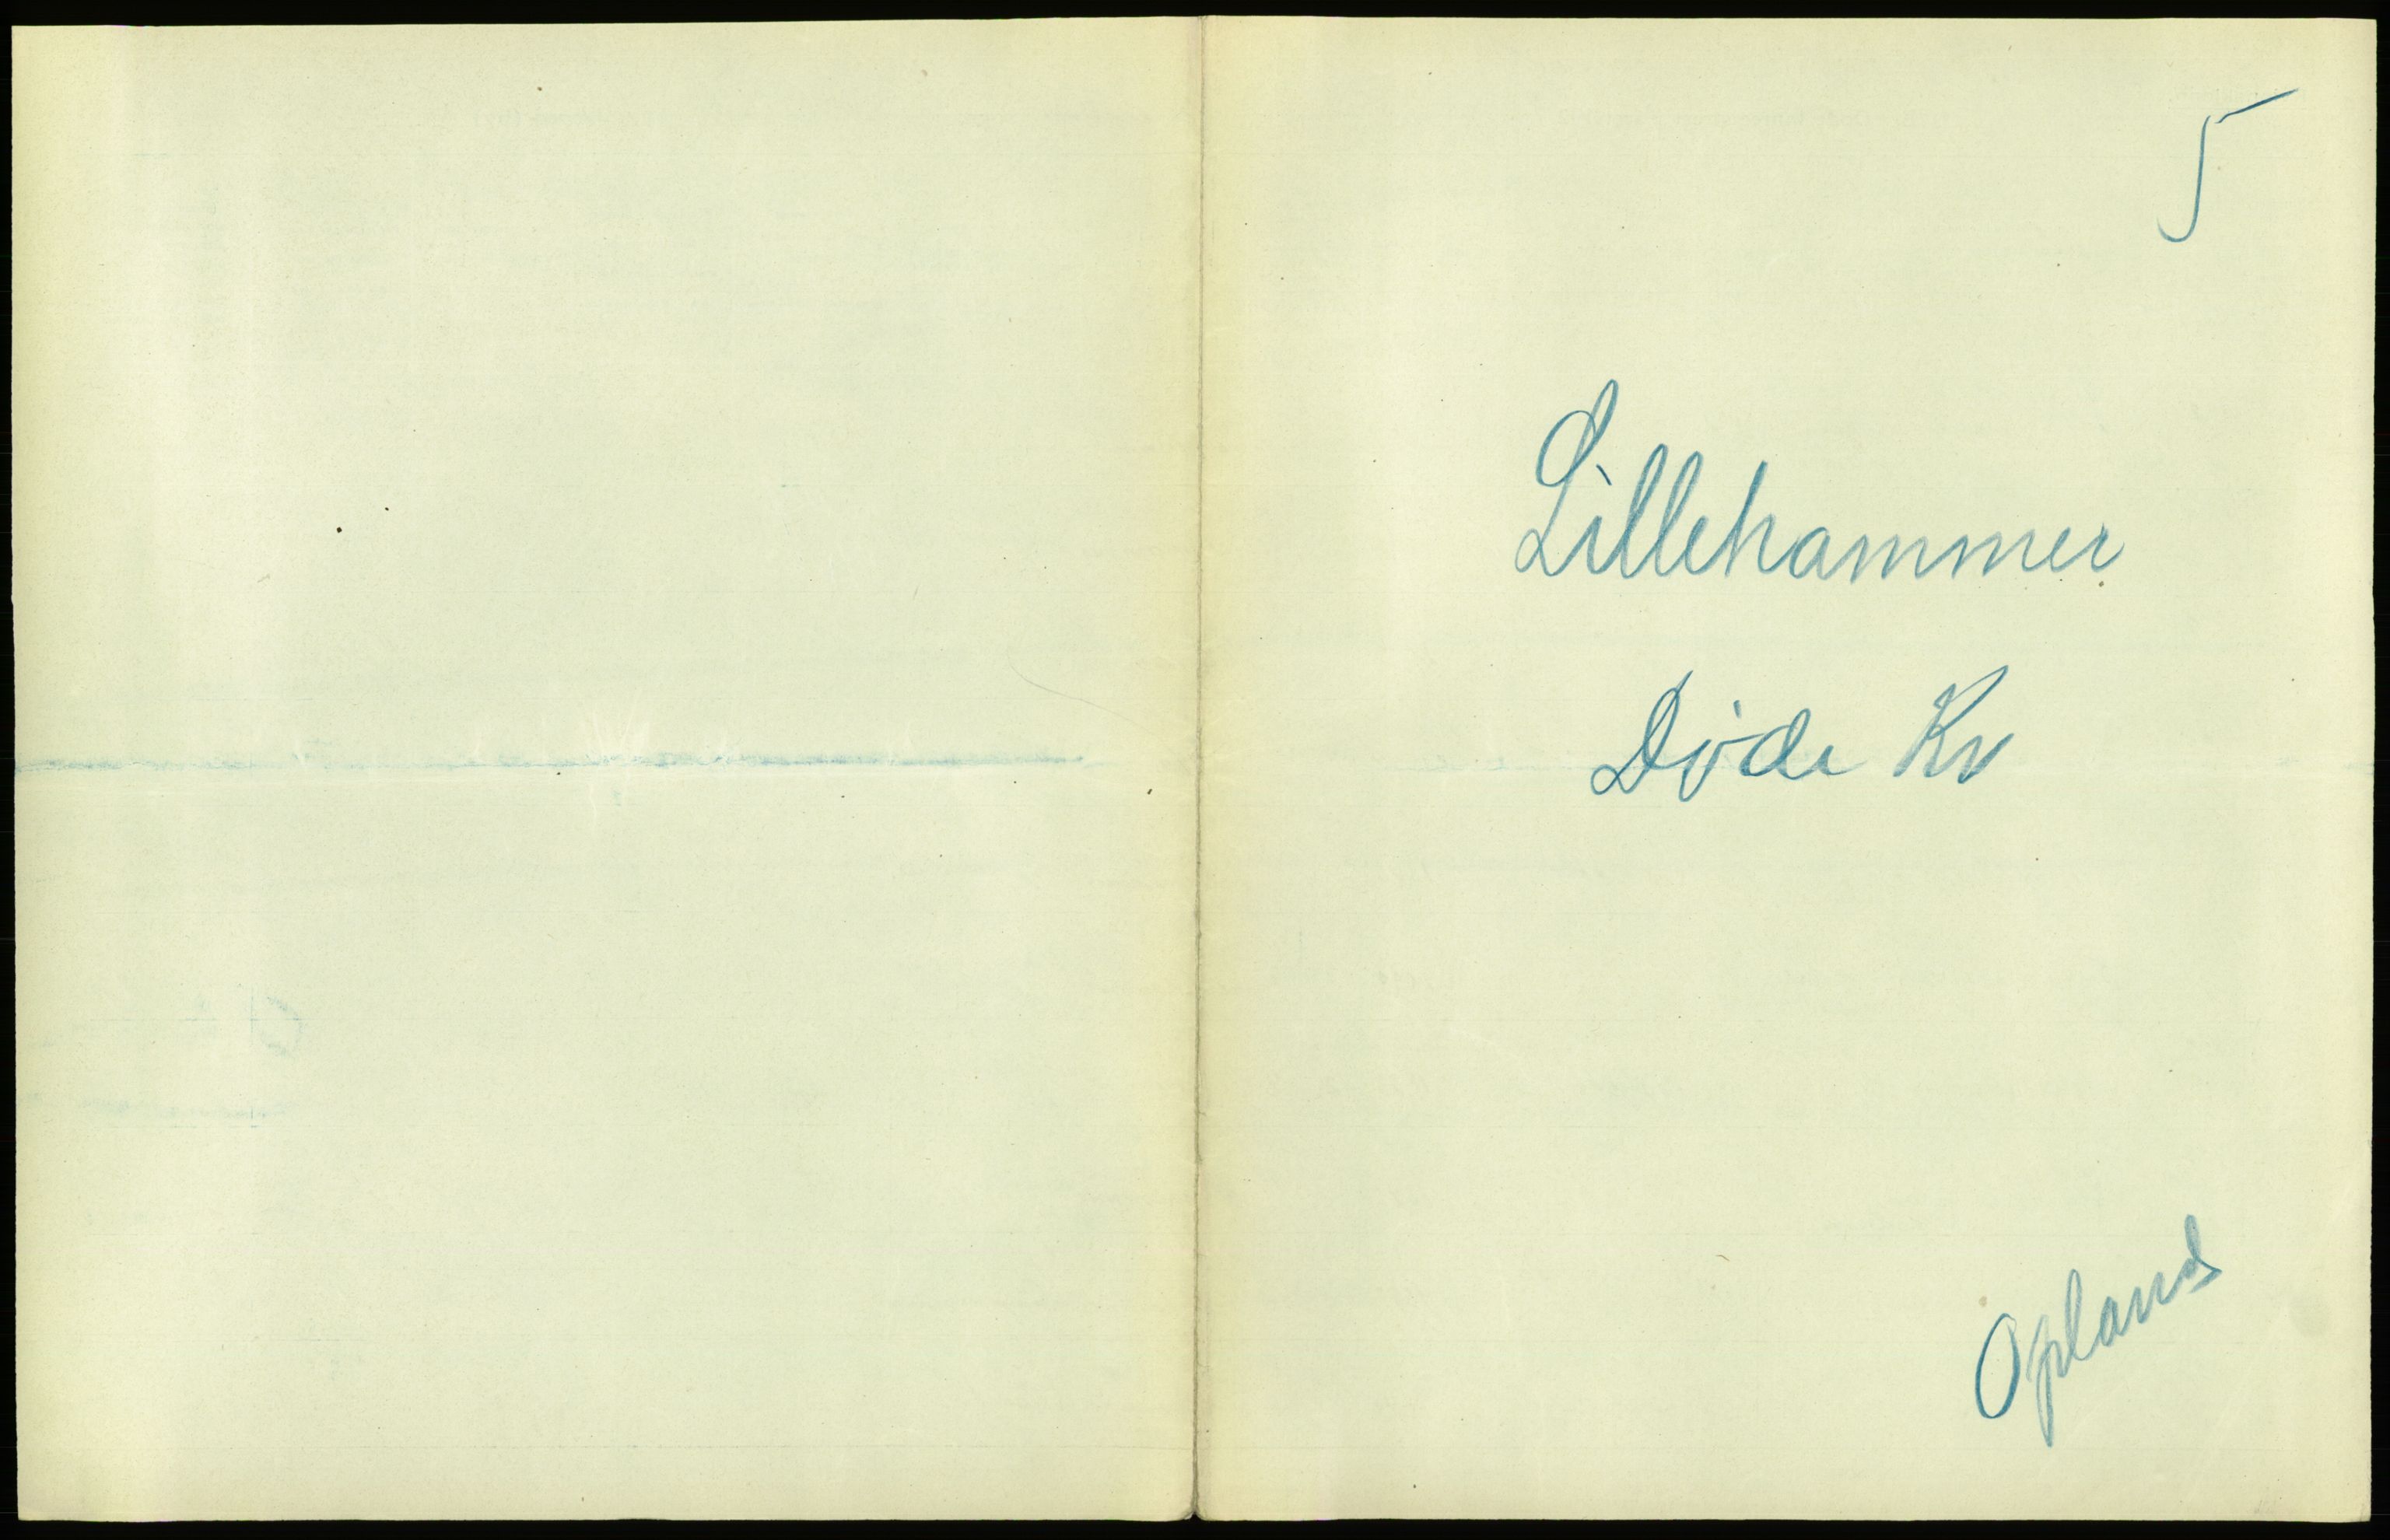 5
Lillehammer
Døde Kv
Opland